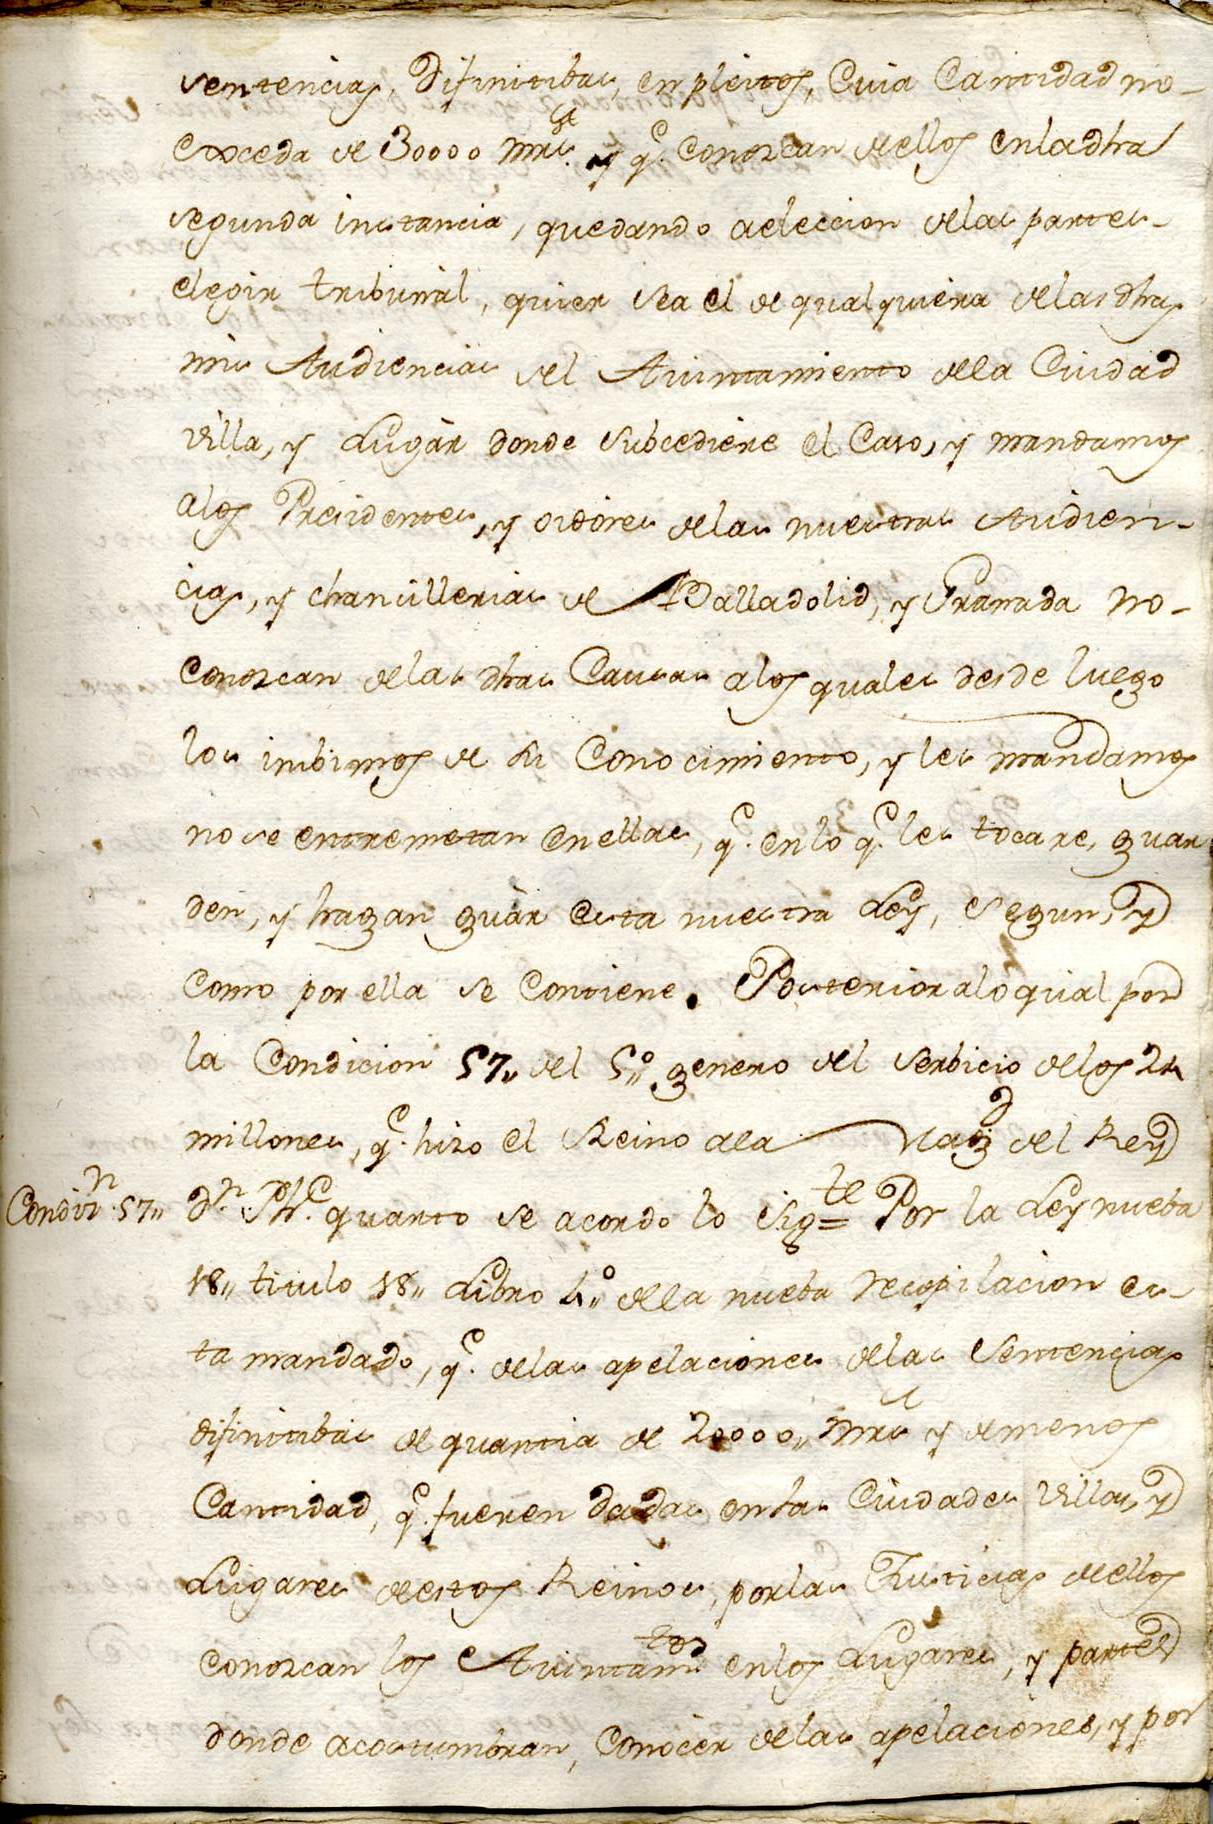 sentencias, difinitibas, en pleitos, Cuia Cantidad no-
exceda de 30000 mrs. y q.e conozcan de ellos en la dha
segunda instancia, quedando a eleccion de las partes-
elegir tribunal, quier sea el de qualquiera de las dhas
mis Audiencias del Aiuntamiento della Ciudad
villa, y Lugàr donde subcediere el Caso, y mandamos
a los Presidentes, y oidores de las nuestras Audien-
cias, y chancillerias de Balladolid, y Granada no-
Conozcan de las dhas Causas a los quales desde luego
los inibimos de su Conocimiento, y les mandamos
no se entremetan en ellas, q.e en lo q.e les tocare, guar
den, y hagan guàr esta nuestra Ley, segun, y
como por ella se contiene. Posterior a lo qual por
la Condicion 57,, del 5,,o genero del serbicio de los 24
millones, q.e hizo el Reino a la Mag.d del Rey
Condiz.n 57,, d.n Ph.e quarto se acordo lo sig.te = Por la Ley nueba
18,, titulo 18,, Libro 4,,o della nueba recopilacion es-
ta mandado, q.e de las apelaciones de las sentencias
difinitibas de quantia de 20000,, mrs y de menos
Cantidad, q.e fueren dadas en las Ciudades Villas, y
Lugares de estos Reinos, por las Justicias de ellos
conozcan los Aiuntam.tos en los Lugares, y partes
donde acostumbran, Conocer de las apelaciones, y por